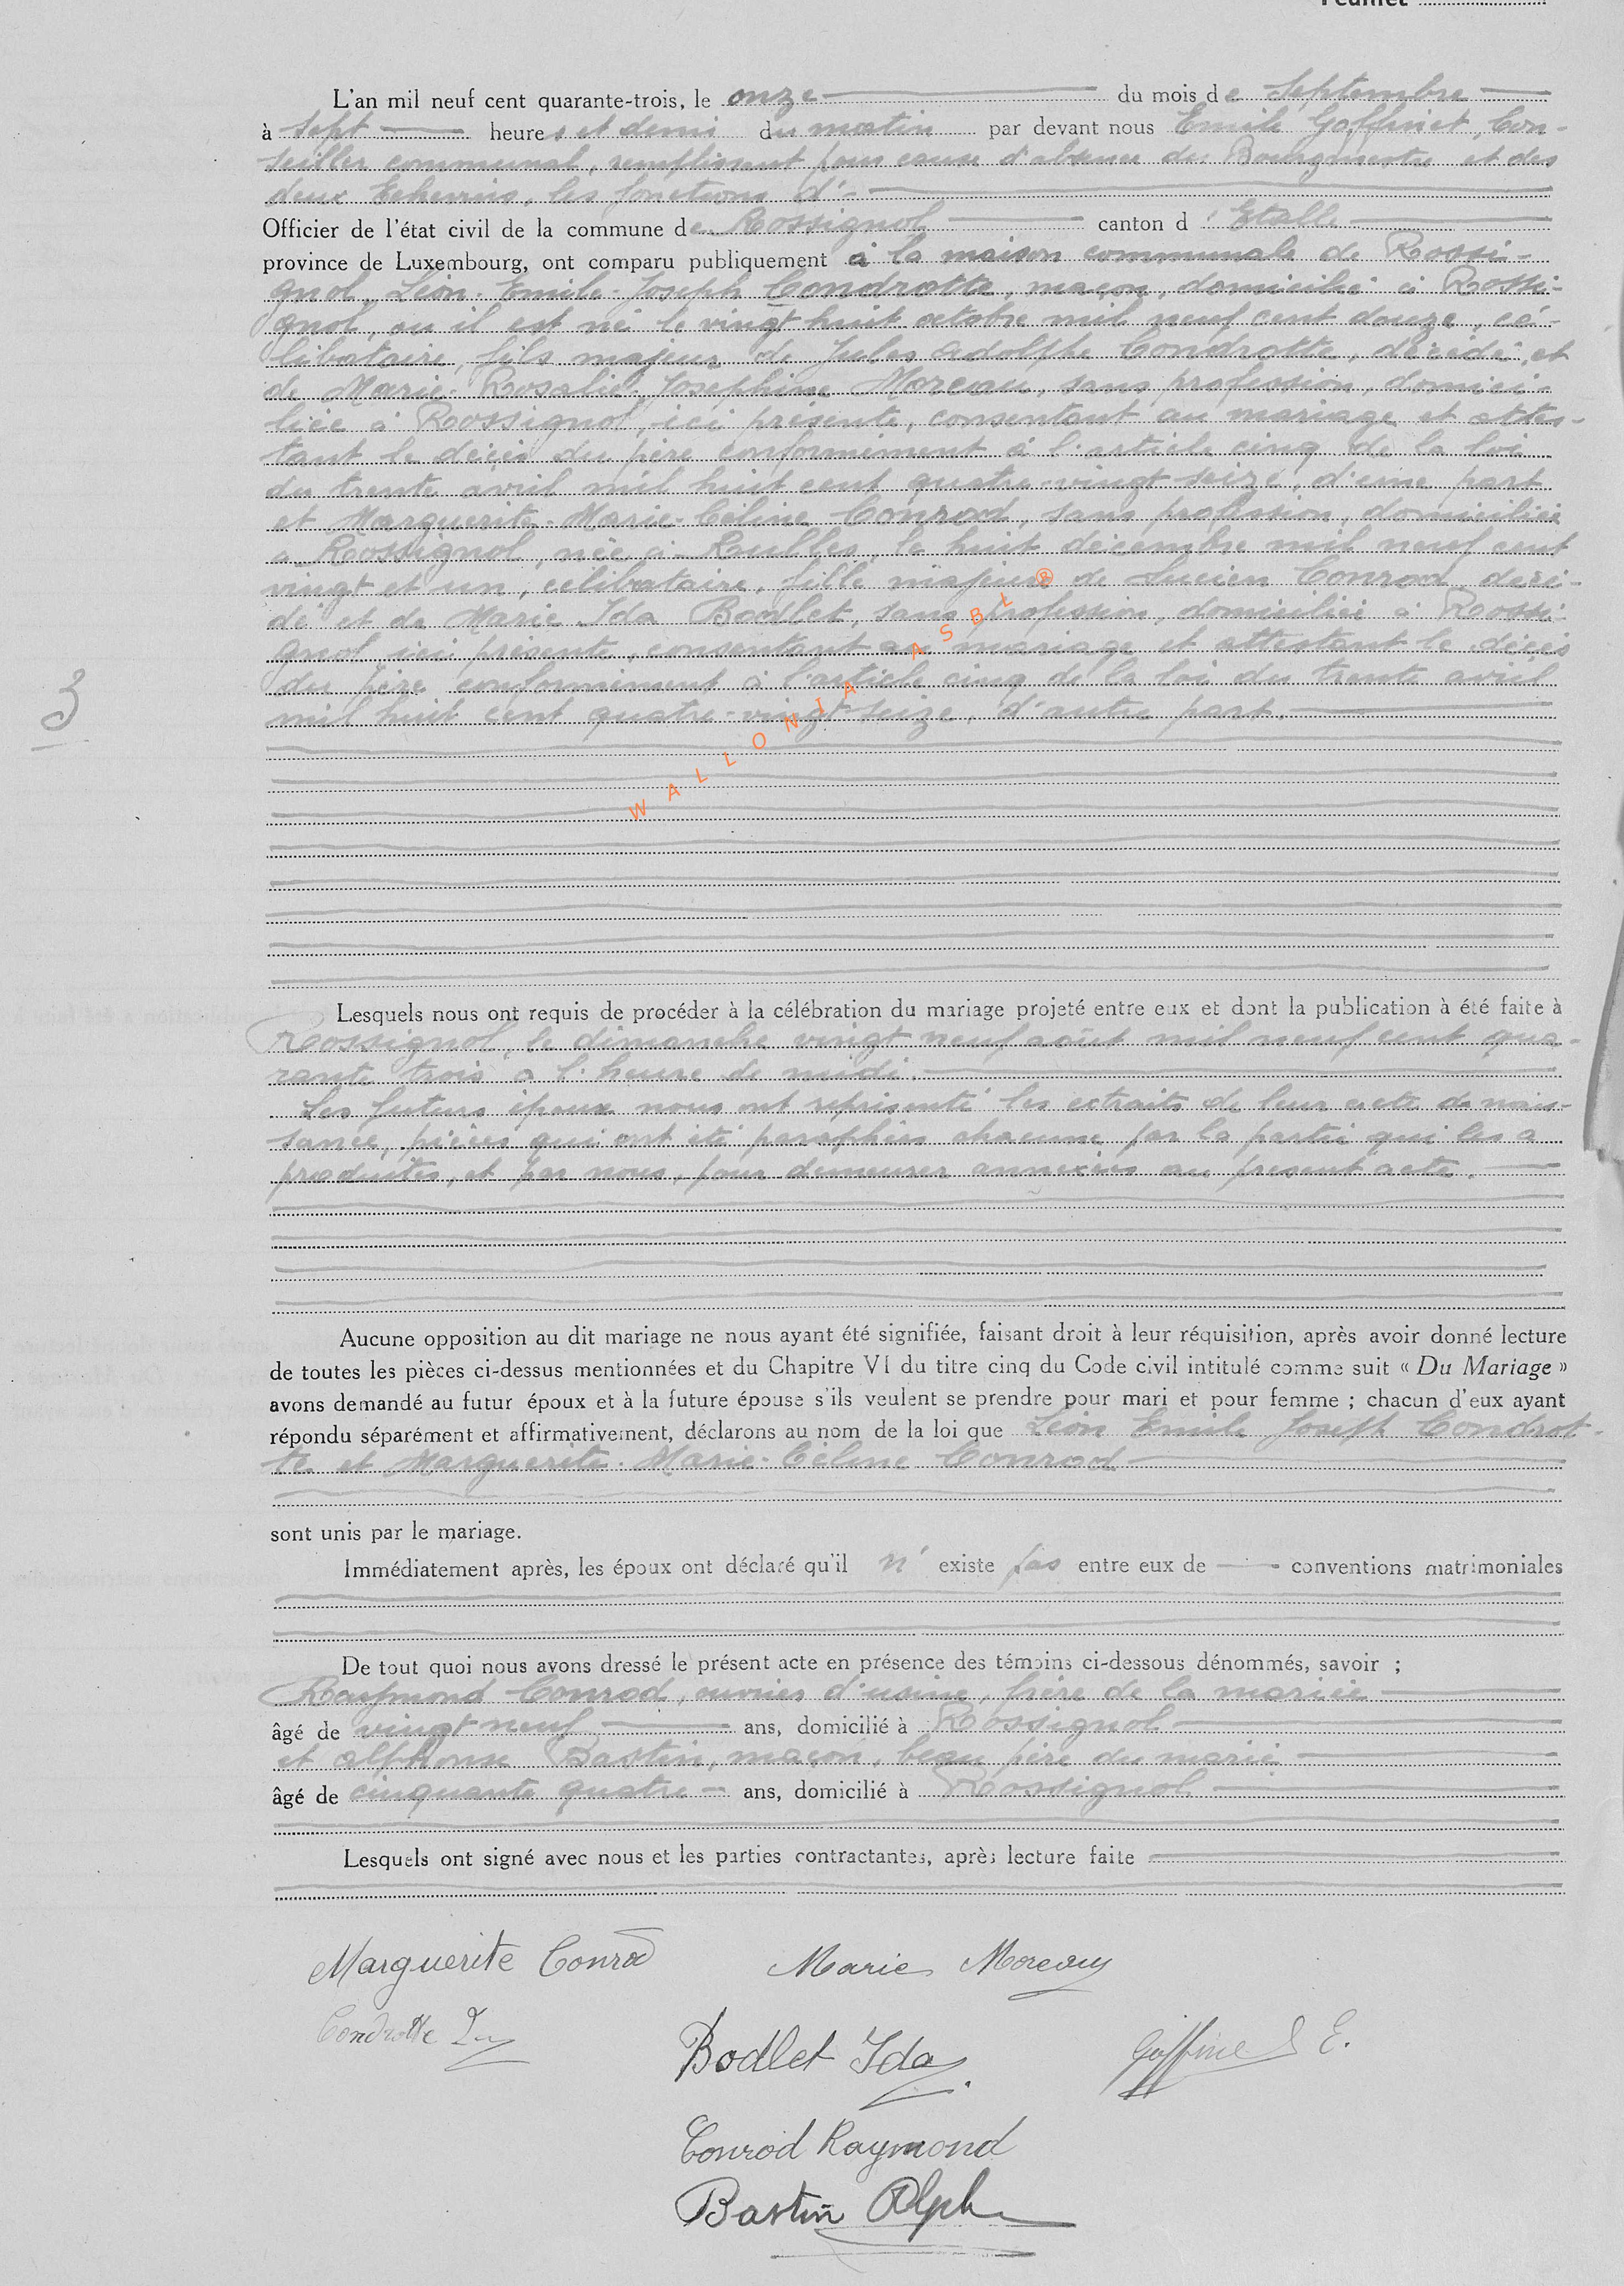 Feuillet
L'an mil neuf cent quarante-trois, le onze du mois de Septembre
à sept heures et demi du matin par devant nous Emile Goffinet, Con-
seiller communal, remplissant pour cause d'absence du Bourgmestre et des
deux Echevins, les fonctions d'
Officier de l'état civil de la commune de Rossignol canton d'Etalle
province de Luxembourg, ont comparu publiquement à la maison communale de Rossi-
gnol, Léon-Emile-Joseph Condrotte, maçon, domicilié à Rossi-
gnol, ou il est né le vingt huit octobre mil neuf cent douze, cé-
libataire, fils majeur de Jules Adolphe Condrotte, décédé, et
de Marie-Rosalie-Josephine Moreau, sans profession, domici-
liée à Rossignol, ici présente, consentant au mariage et attes-
tant le décès du père conformément à l'article cinq de la loi
du trente avril mil huit cent quatre-vingt-seize, d'une part
et Marguerite-Marie-Céline Conrod, sans profession, domiciliée
à Rossignol, née à Rulles, le huit décembre mil neuf cent
vingt et un, célibataire, fille majeure de Lucien Conrod, décé-
dé et de Marie Ida Bodlet, sans profession, domiciliée à Rossi-
gnol, ici présente, consentant au mariage et attestant le décès
du père conformément à l'article cinq de la loi du trente avril
mil huit cent quatre-vingt-seize, d'autre part.
3
WALLONIA ASBL ®
Lesquels nous ont requis de procéder à la célébration du mariage projeté entre eux et dont la publication à été faite à
Rossignol, le dimanche vingt neuf août mil neuf cent qua-
rante trois à l'heure de midi.
Les futurs époux nous ont représenté les extraits de leur acte de nais-
sance, pièces qui ont été paraphées chacune par la partie qui les a
produites, et par nous, pour demeurer annexées au présent acte.
Aucune opposition au dit mariage ne nous ayant été signifiée, faisant droit à leur réquisition, après avoir donné lecture
de toutes les pièces ci-dessus mentionnées et du Chapitre VI du titre cinq du Code civil intitulé comme suit « Du Mariage »
avons demandé au futur époux et à la future épouse s'ils veulent se prendre pour mari et pour femme ; chacun d'eux ayant
répondu séparément et affirmativement, déclarons au nom de la loi que Léon Emile Joseph Condrot-
te et Marguerite-Marie-Céline Conrod
sont unis par le mariage.
Immédiatement après, les époux ont déclaré qu'il n'existe pas entre eux de conventions matrimoniales
De tout quoi nous avons dressé le présent acte en présence des témoins ci-dessous dénommés, savoir ;
Raymond Conrod, ouvrier d'usine, frère de la mariée
âgé de vingt neuf ans, domicilié à Rossignol
et Alphonse Bastin, maçon, beau père du marié
âgé de cinquante quatre ans, domicilié à Rossignol
Lesquels ont signé avec nous et les parties contractantes, après lecture faite
Marguerite Conrod Marie Moreau
Condrotte
Bodlet Ida Goffinet E.
Conrod Raymond
Bastin Alph